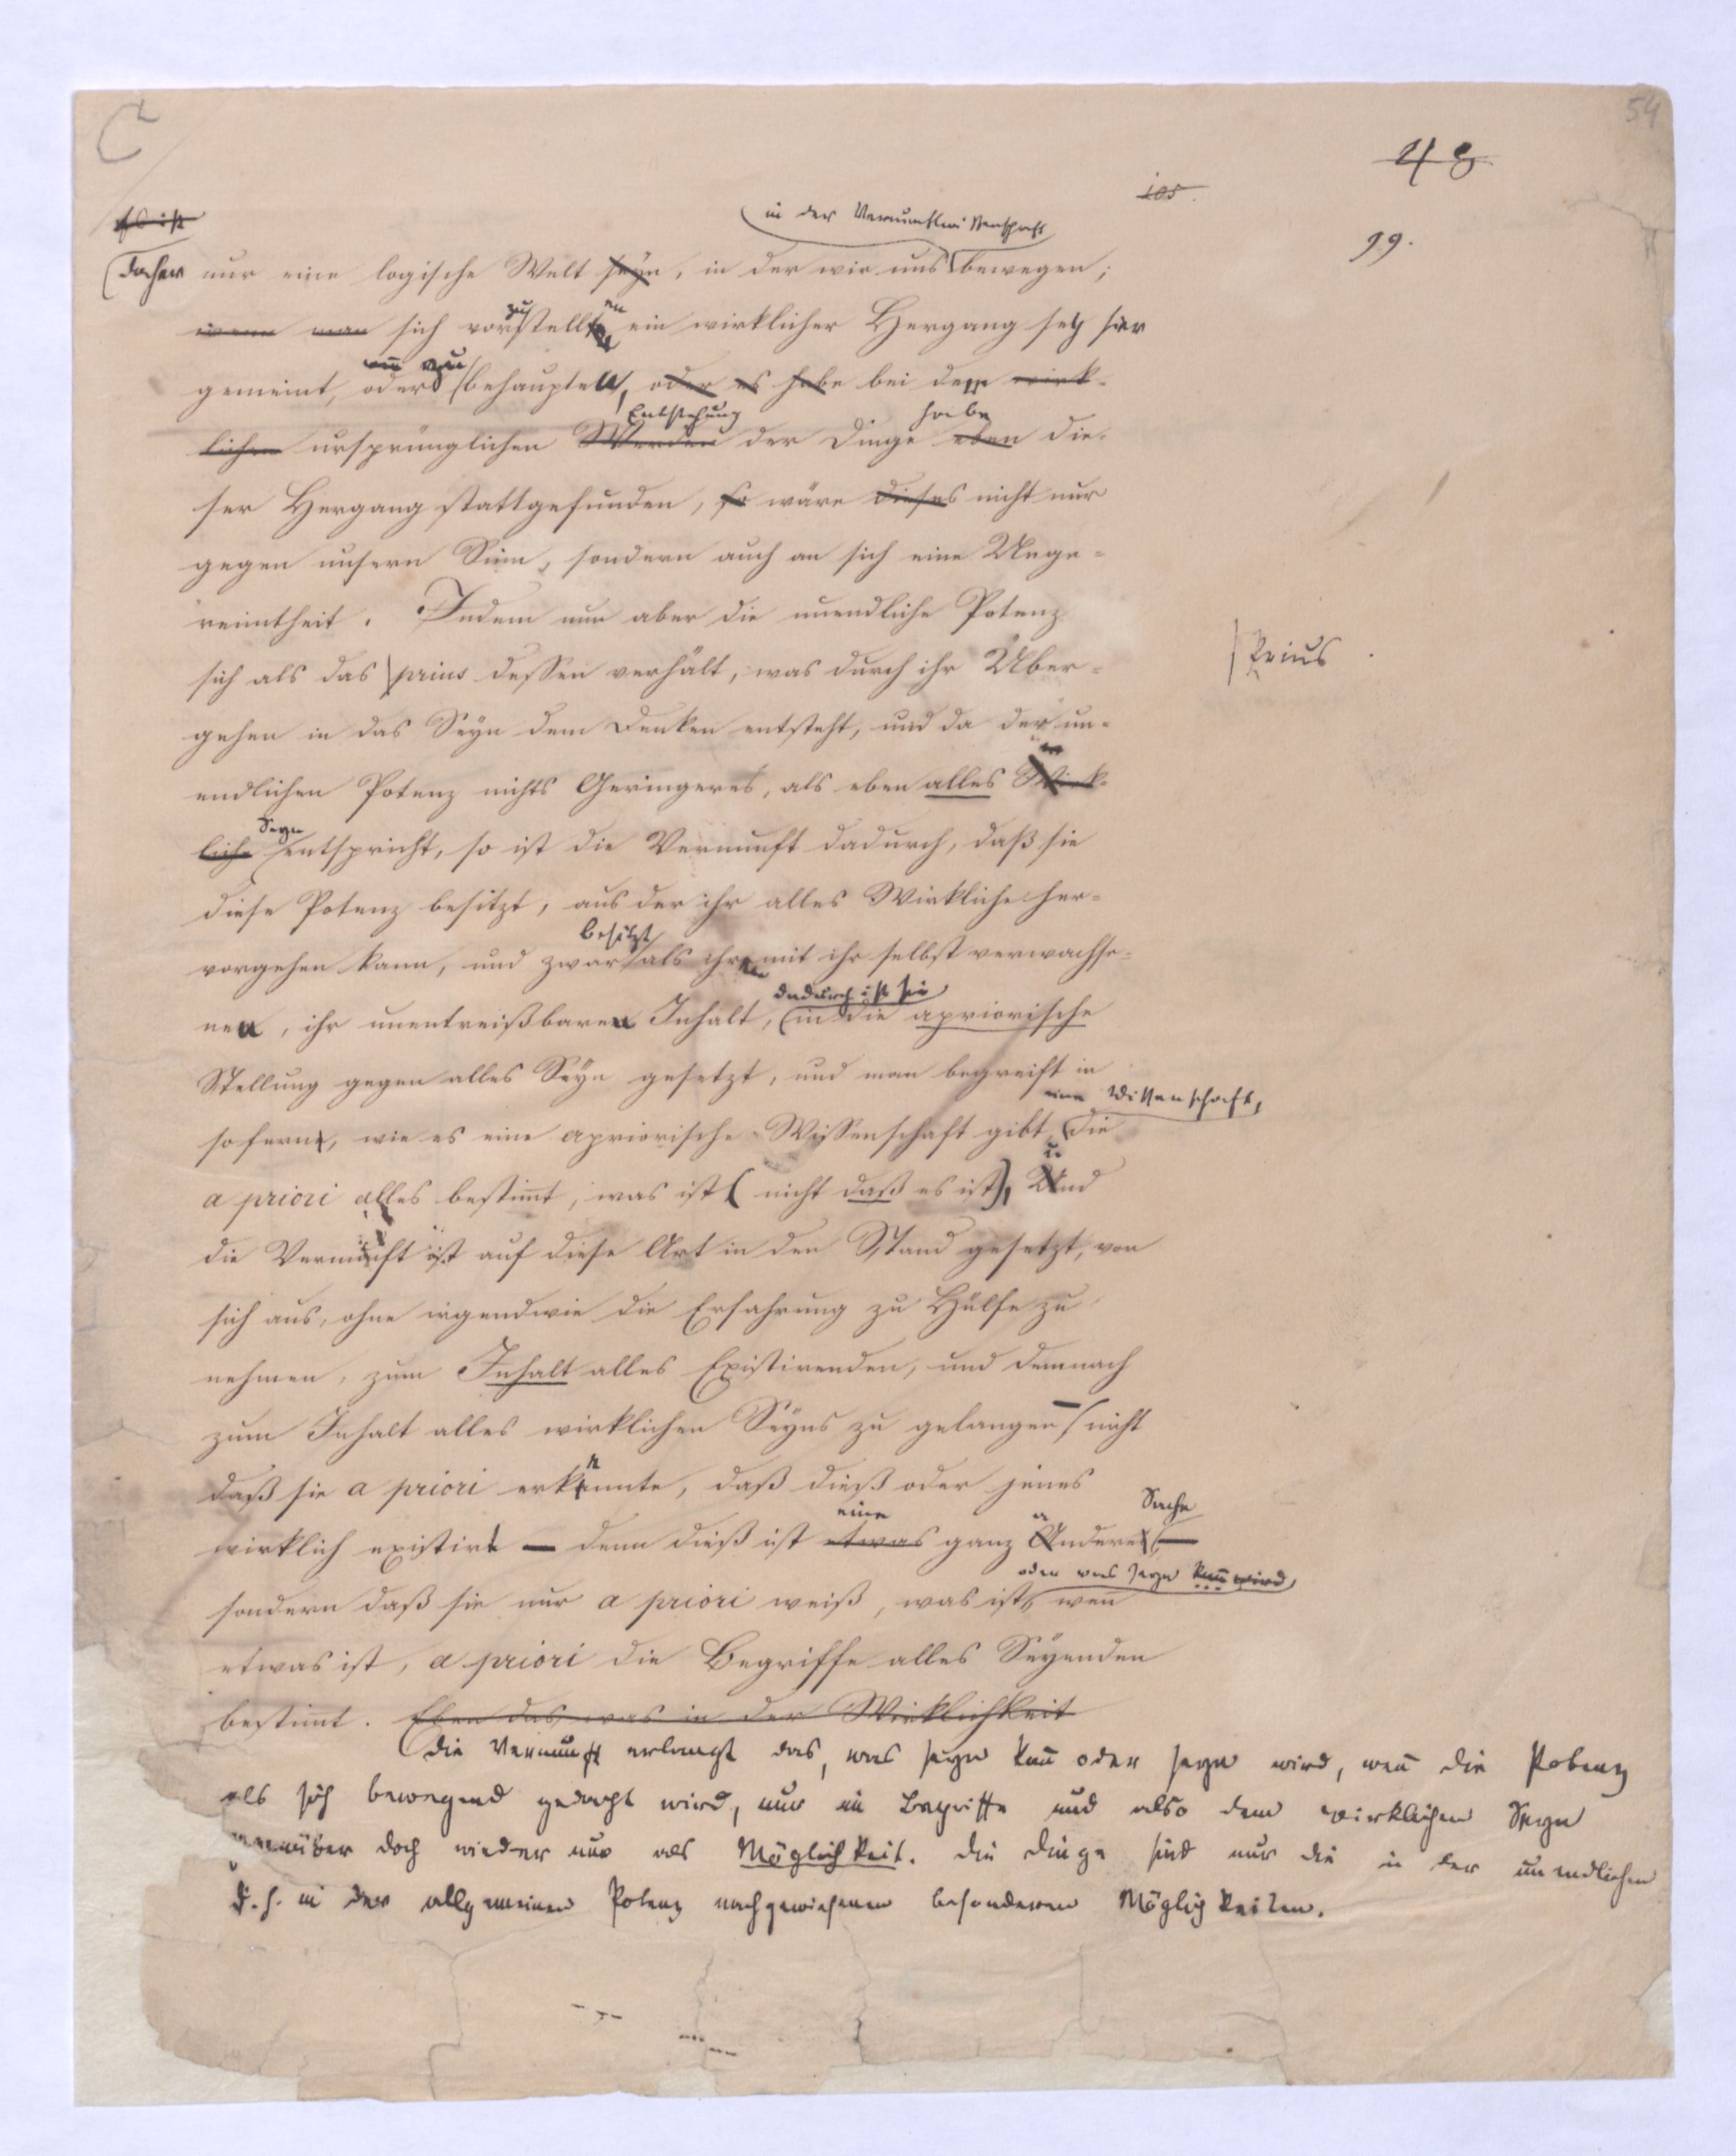 C
54
48
105.
99.
es ist
in der Vernunftwissenschaft
daher nur eine logische Welt seyn, in der wir uns bewegen;
zu en
wenn man sich vorstellte ein wirklicher Hergang sey hier
zu
gemeint, oder behaupten, oder es habe bei dem wirk-
Entstehung habe
lichen ursprünglichen Werden der Dinge eben die-
ser Hergang stattgefunden, so wäre dieses nicht nur
gegen unsern Sinn, sondern auch an sich eine Unge-
reimtheit. Indem nun aber die unendliche Potenz
sich als das prius dessen verhält, was durch ihr Über-
Prius
gehen in das Seyn dem Denken entsteht, und da der un-
endlichen Potenz nichts Geringeres, als eben alles Wirk-
Seyn
liche entspricht, so ist die Vernunft dadurch, daß sie
diese Potenz besitzt, aus der ihr alles Wirkliche her-
besitzt
vorgehen kann, und zwar als ihren mit ihr selbst verwachse-
dadurch ist sie
nen, ihr unentreißbaren Inhalt, in die apriorische
Stellung gegen alles Seyn gesetzt, und man begreift in
eine Wissenschaft,
sofern, wie es eine apriorische Wissenschaft gibt, die
u
a priori alles bestimt, was ist (nicht daß es ist), Und
die Vernunft ist auf diese Art in den Stand gesetzt, von
sich aus, ohne irgendwie die Erfahrung zu Hülfe zu
nehmen, zum Inhalt alles Existirenden, und demnach
zum Inhalt alles wirklichen Seyns zu gelangen – nicht
daß sie a priori erkennte, daß dieß oder jenes
eine Sache
wirklich existirt – denn dieß ist etwas ganz Anderes –
oder was seyn kan̄ wird,
sondern daß sie nur a priori weiß, was ist, wen̄
etwas ist, a priori die Begriffe alles Seyenden
bestimt. Eben das, was in der Wirklichkeit
Die Vernunft erlangt das, was seyn kan̄ oder seyn wird, wen̄ die Potenz
als sich bewegend gedacht wird, nur im Begriffe und also dem wirklichen Seyn
genüber doch wieder nur als Möglichkeit. Die Dinge sind nur die in der unendlichen
d. h. in der allgemeinen Potenz nachgewiesenen besonderen Möglichkeiten.